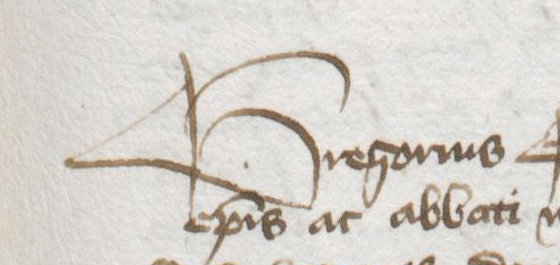 Gregorius
ep̄is ac abbati